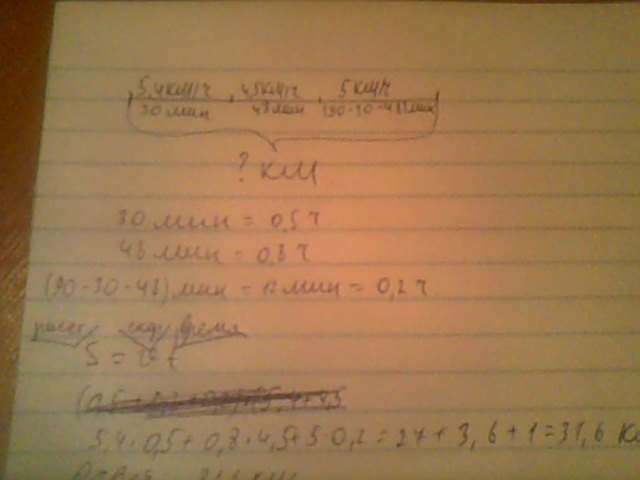 5,4 км/ч 4,5 км/ч 5 км/ч
30 мин 48 мин (90-30-48) мин
? км
30 мин = 0,5 ч
48 мин = 0,8 ч
(90-30-48) мин = 12 мин = 0,2 ч
расст скор время
S = v t
5,4 · 0,5 + 0,8 · 4,5 + 5 · 0,2 = 27 + 3,6 + 1 = 31,6 км